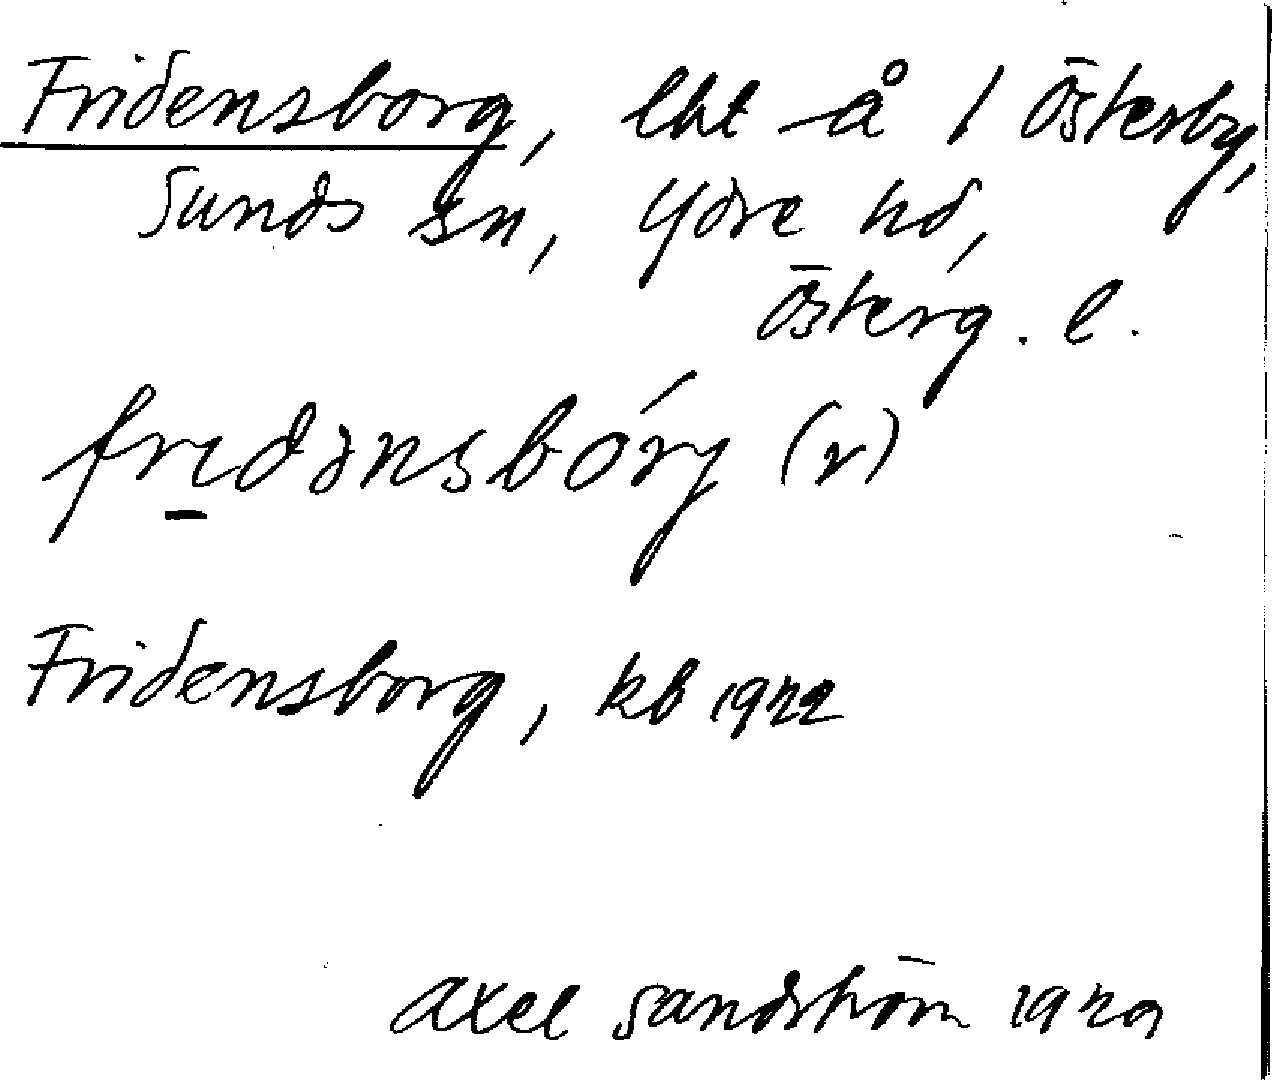 Fridensborg, lht å 1 Österby,
Sunds sn, Ydre hd,
Österg. l.
fridənsbórg (r)
Fridensborg, kb 1922
Axel Sandström 1929